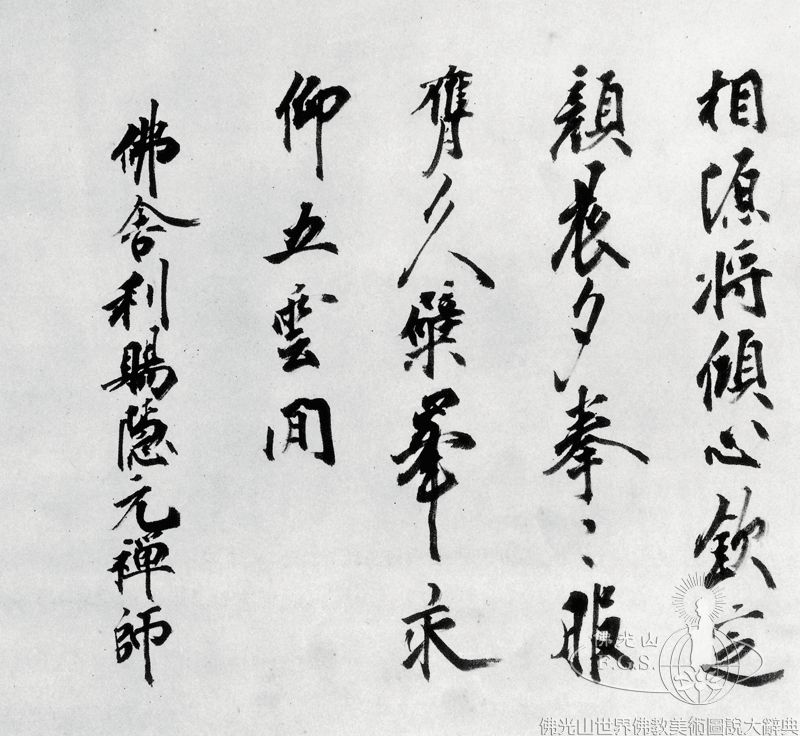 相源将傾心欽定
顏晨夕拳〻服
膺久檗峯永
仰五雲間
佛舍利賜隱元禪師
佛光山
F.G.S.
佛光山世界佛教美術圖說大辭典